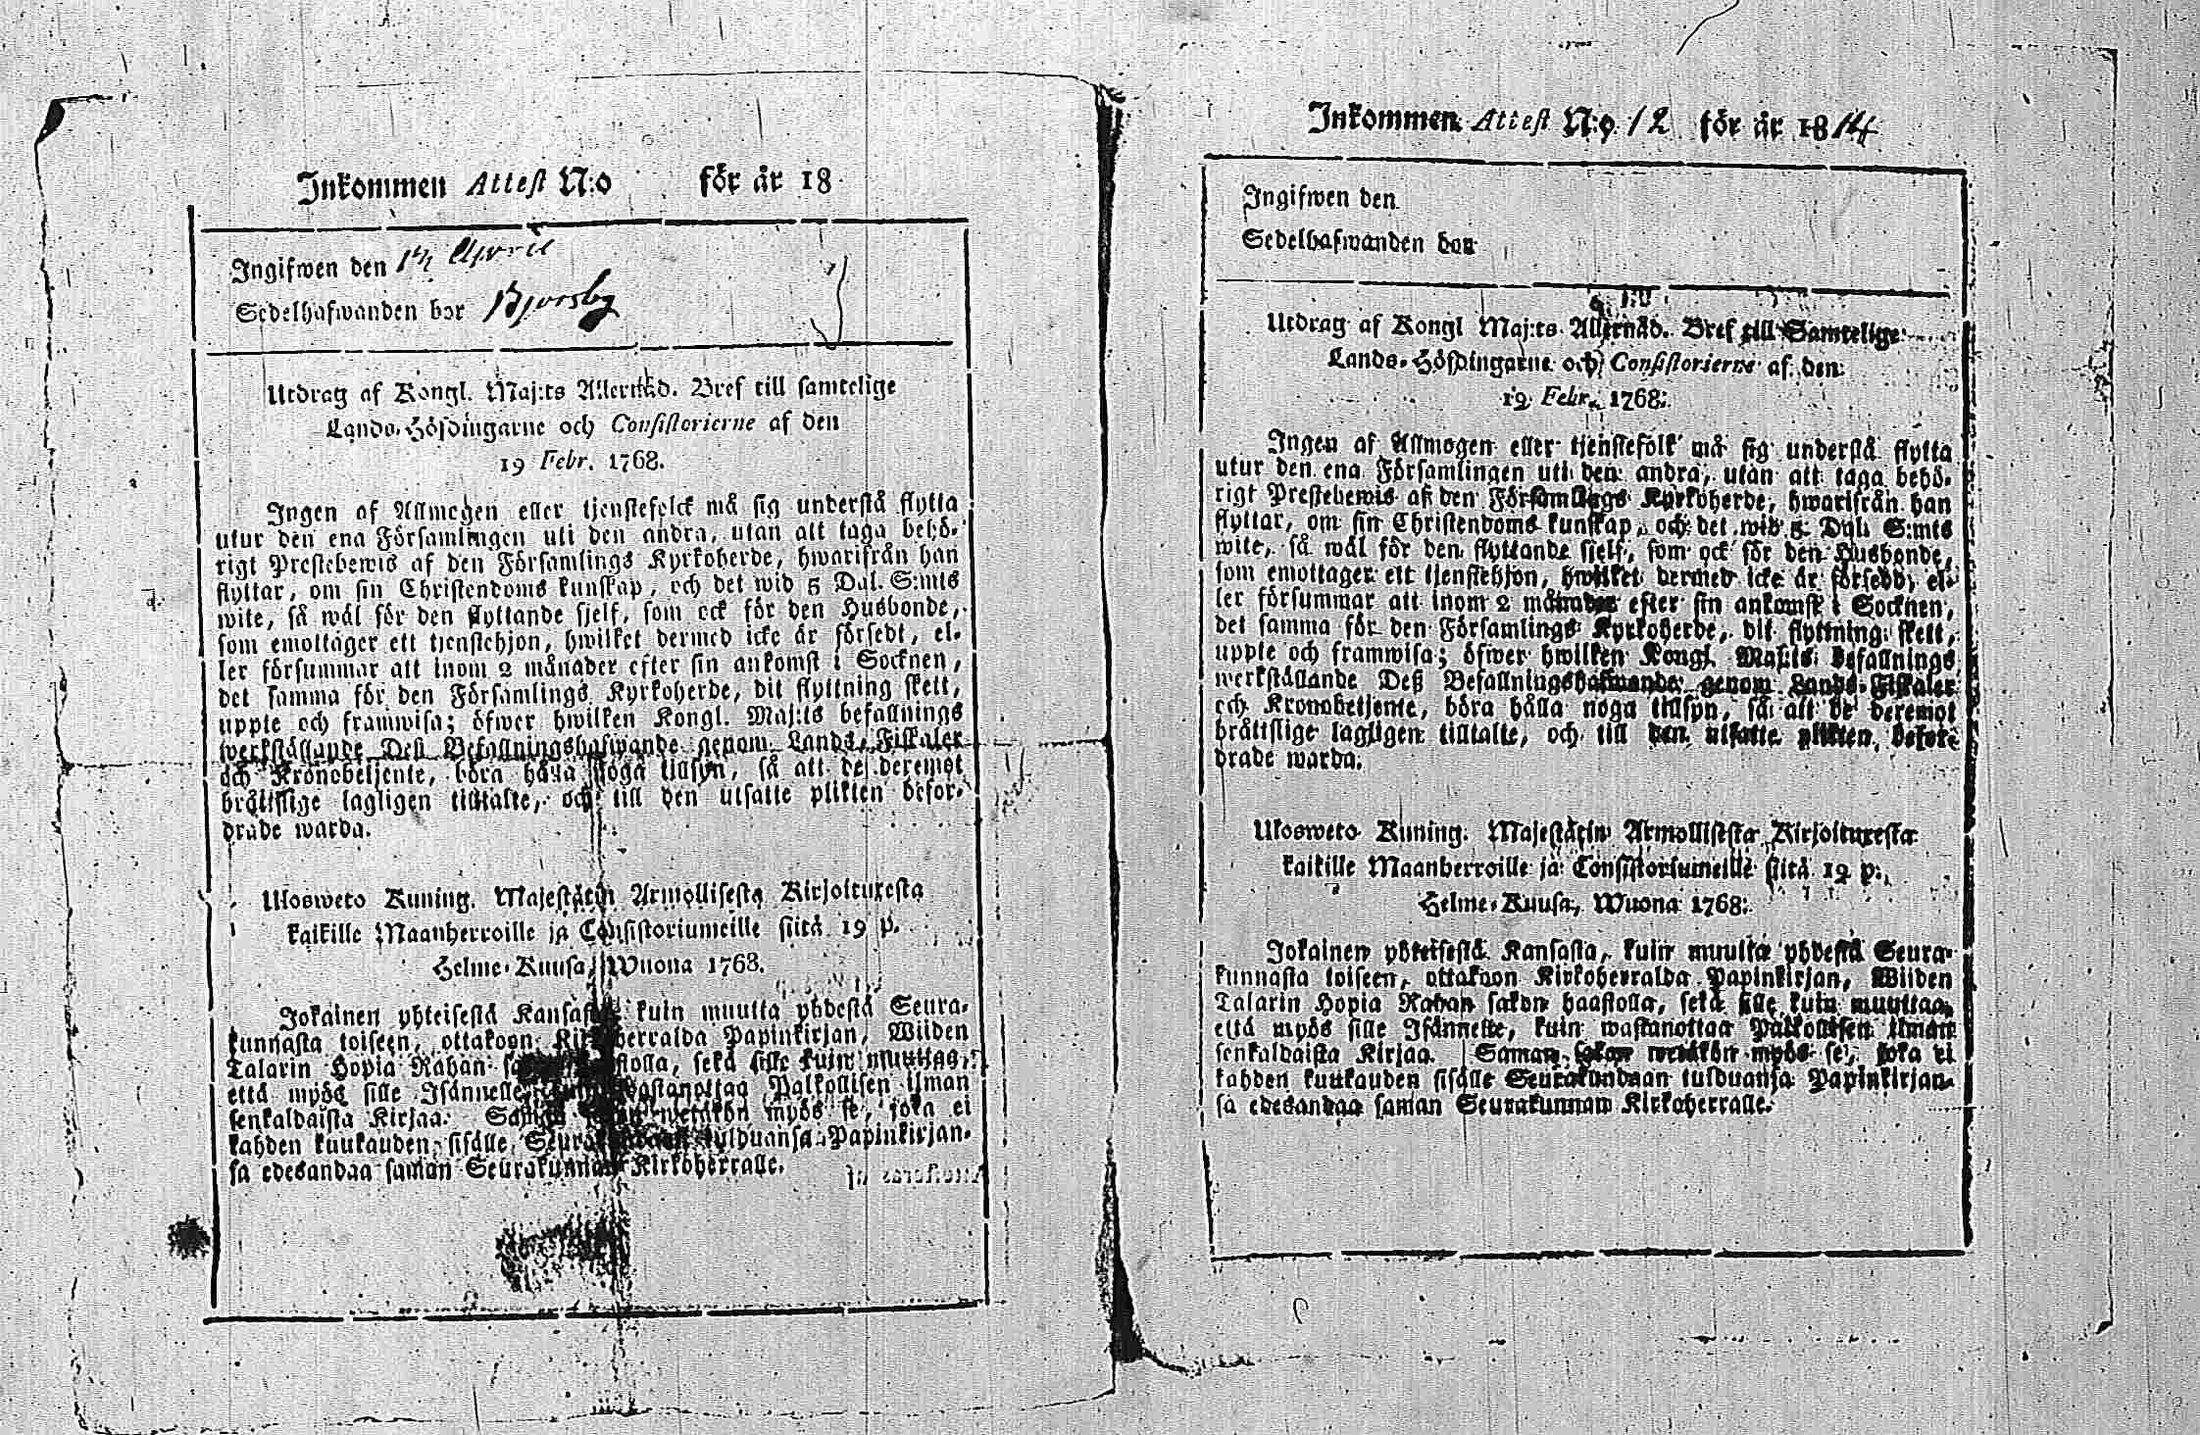 Inkommen Attest N:o för år 18
Ingifwen den April
Sedelhafwanden bor
Utdrag af Kongl. Maj:ts Allernåd. Bref till samtelige
Lands-Höfdingarne och Consistorierne af den
19 Febr. 1768.
Ingen af Allmogen eller tjenstefolck må sig understå flytta
utur den ena Församlingen uti den andra, utan att taga behö-
rigt Prestebewis af den Församlings Kyrkoherde, hwarifrån han
flyttar, om sin Christendoms kunskap, och det wid 5 Dal. S:mts
wite, så wäl för den flyttande sjelf, som ock för den Husbonde,
som emottager ett tjenstehjon, hwilket dermed icke är försedt, el-
ler försummar att inom 2 månader efter sin ankomst i Socknen,
det samma för den Församlings Kyrkoherde, dit flyttning skett,
uppte och framwisa; öfwer hwilken Kongl. Maj:ts befallnings
werkställande Deß Befallningshafwande genom Lands-Fiskaler
och Kronobetjente, böra hålla noga tillsyn, så att de deremot
brätslige lagligen tilltalte, och till den utsatte plikten befor-
drade warda.
Ulosweto Kuning. Majestätin Armollisesta Kirjoituxesta
kaikille Maanherroille ja Consistoriumeille siitä 19 p.
Helme-Kuusa, Wuona 1768.
Jokainen yhteisestä Kansasta, kuin muutta yhdestä Seura-
kunnasta toiseen, ottakoon Kirkoherralda Papinkirjan, Wiiden
Talarin Hopia Rahan sekä sille kuin muuttaa,
että myös sille Isännelle, wastanottaa Palkollisen ilman
senkaldaista Kirjaa. myös se, joka ei
kahden kuukauden sisälle tulduansa Papinkirjan-
sa edesandaa saman Seurakunnan Kirkoherralle.
Inkommen Attest N:o 12 för år 1814
Ingifwen den
Sedelhafwanden bor
Utdrag af Kongl Maj:ts Allernåd. Bref till Samtelige
Lands-Höfdingarne och Consistorierne af den
19 Febr. 1768.
Ingen af Allmogen eller tjenstefolk må sig understå flytta
utur den ena Församlingen uti den andra, utan att taga behö-
rigt Prestebewis af den Församlings Kyrkoherde, hwarifrån han
flyttar, om sin Christendoms kunskap, och det wid 5 Dal. S:mts
wite, så wäl för den flyttande sjelf, som ock för den Husbonde,
som emottager ett tjenstehjon, hwilket dermed icke är försedd, el-
ler försummar att inom 2 månader efter sin ankomst i Socknen,
det samma för den Församlings Kyrkoherde, dit flyttning skett,
uppte och framwisa; öfwer hwilken Kongl. Maj:ts befallnings
werkställande Deß Befallningshafwande genom Lands-Fiskaler
och Kronobetjente, böra hålla noga tillsyn, så att de deremot
brätslige lagligen tilltalte, och till den utsatte plikten befor-
drade warda.
Ulosweto Kuning. Majestätin Armollisesta Kirjoituxesta
kaikille Maanherroille ja Consistoriumeille siitä 19 p.
Helme-Kuusa, Wuona 1768.
Jokainen yhteisestä Kansasta, kuin muutta yhdestä Seura-
kunnasta toiseen, ottakoon Kirkoherralda Papinkirjan, Wiiden
Talarin Hopia Rahan sakon haastolla, sekä sille kuin muuttaa,
että myös sille Isännelle, kuin wastanottaa Palkollisen ilman
senkaldaista Kirjaa. Saman sakon wetäkön myös se, joka ei
kahden kuukauden sisälle Seurakundaan tulduansa Papinkirjan-
sa edesandaa saman Seurakunnan Kirkoherralle.